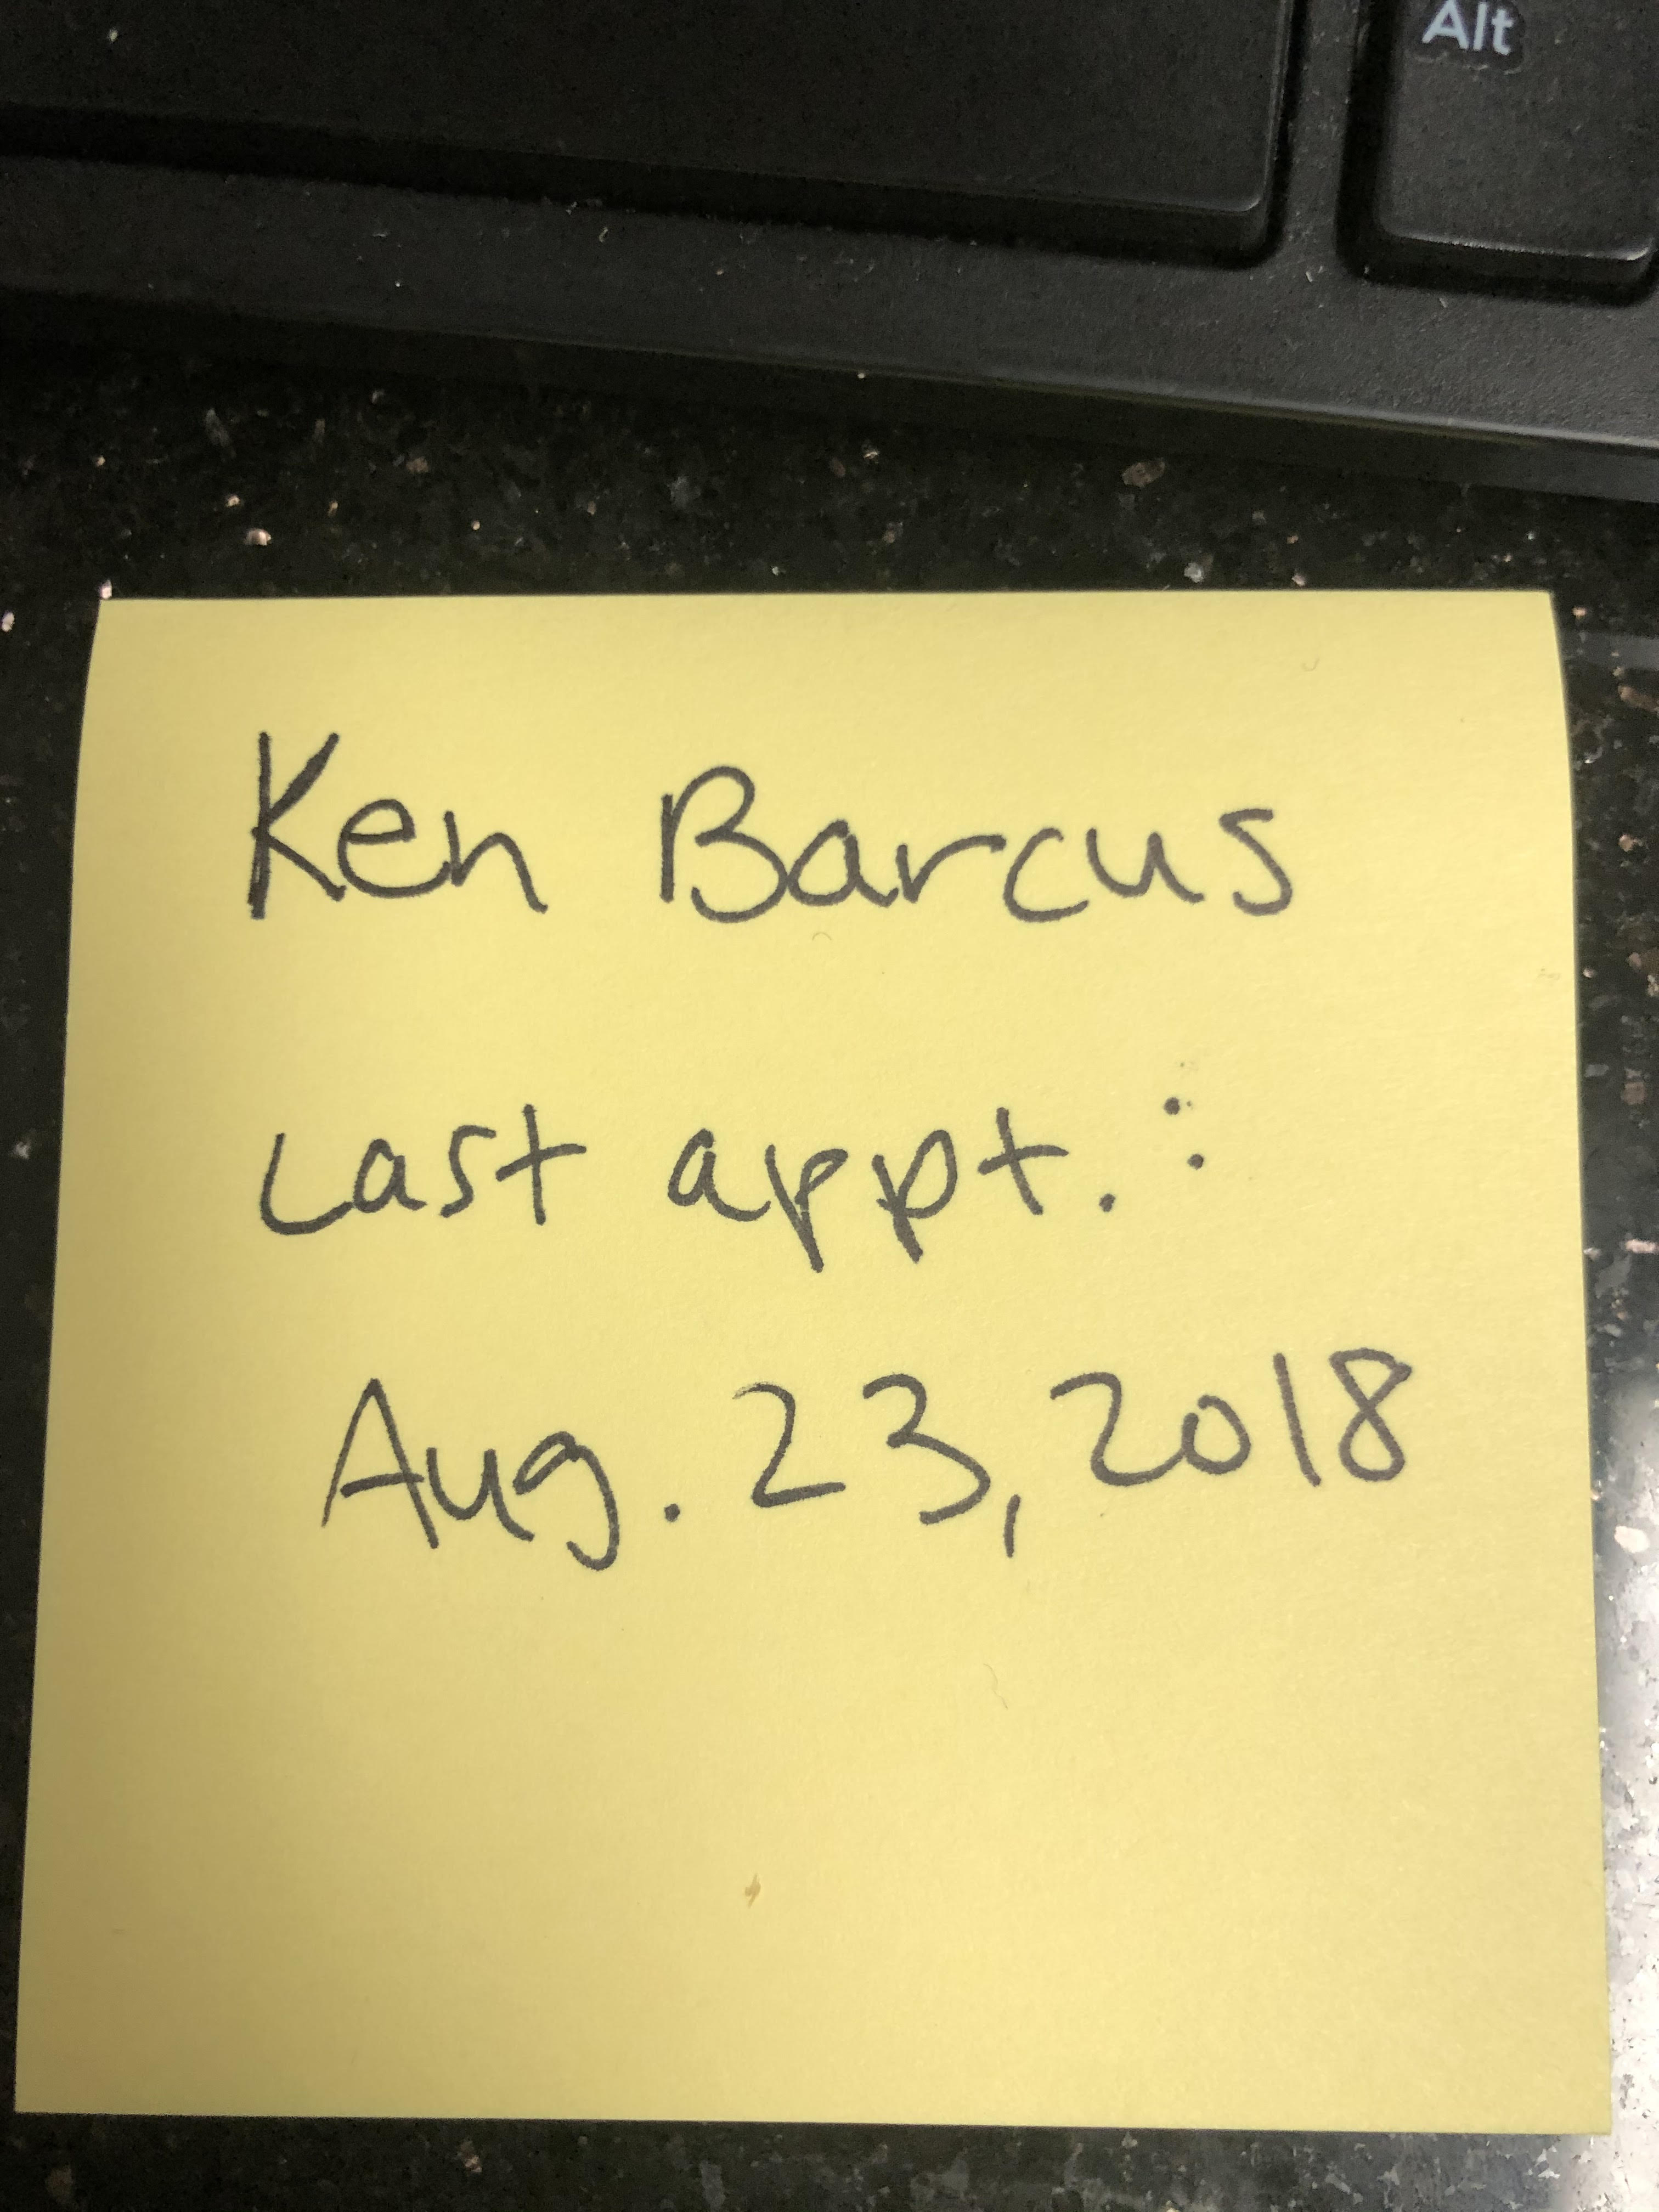 Alt
Ken Barcus
Last appt.:
Aug. 23, 2018